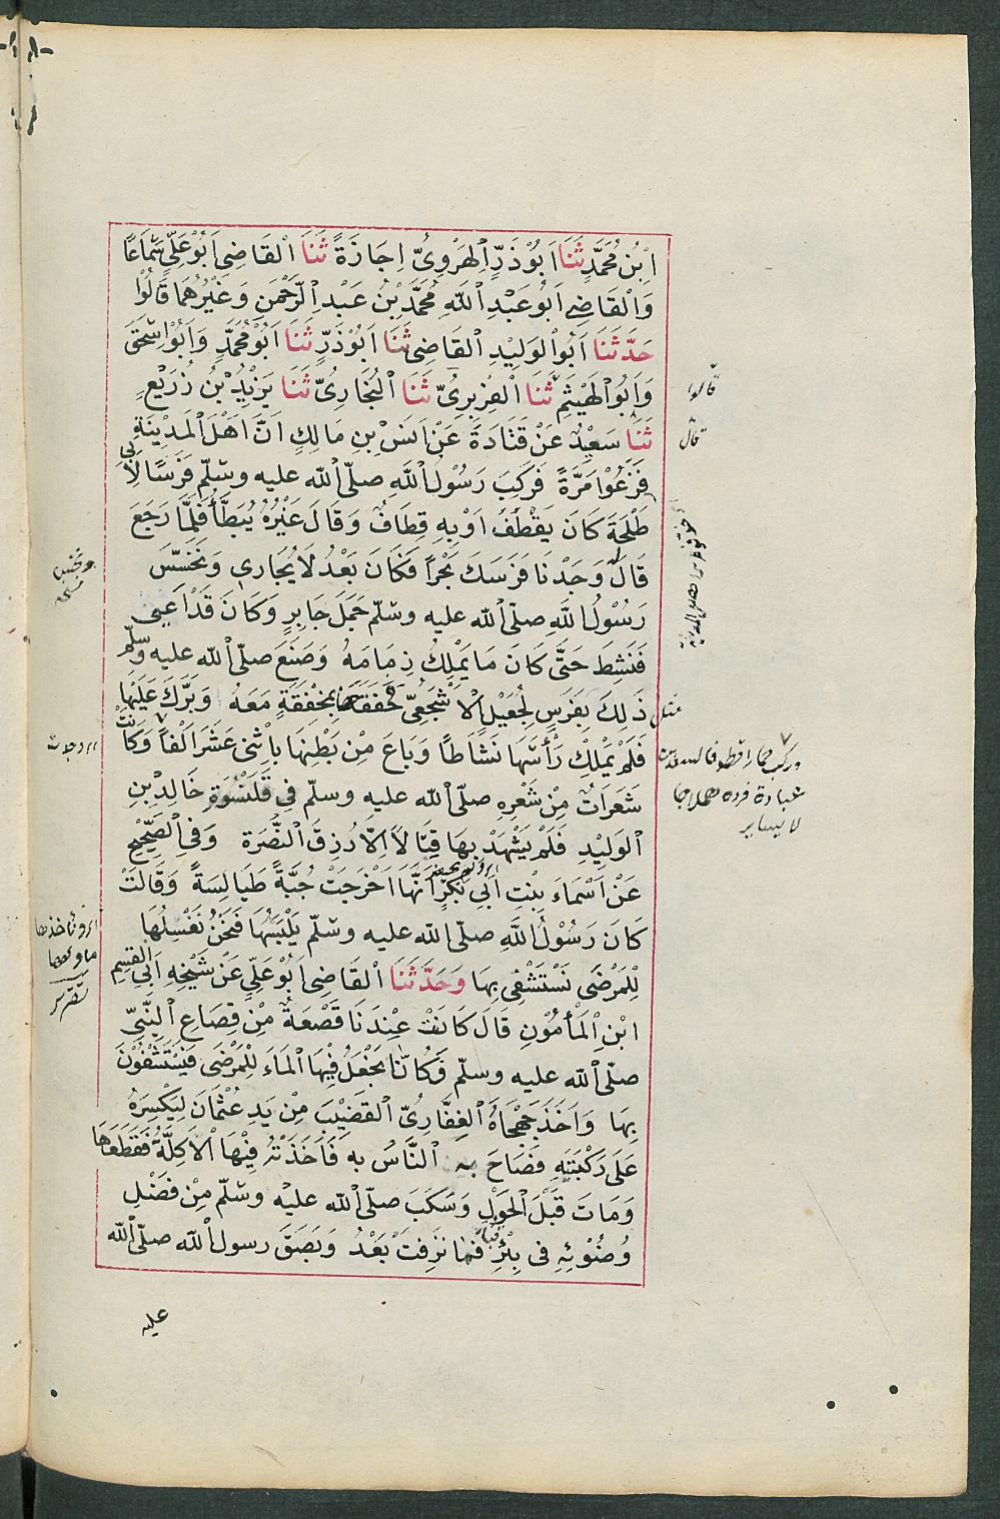 اِبْنُ مُحَمَّدٍ ثَنَا اَبُوْ ذَرٍّ الْهَرَوِىُّ اِجَازَةً ثَنَا الْقَاضِى اَبُوْ عَلِىٍّ سَمَاعًا
وَالْقَاضِى اَبُوْ عَبْدِ اللّٰهِ مُحَمَّدُ بْنُ عَبْدِ الرَّحْمٰنِ وَغَيْرُهُمَا قَالُوْا
حَدَّثَنَا اَبُو الْوَلِيْدِ الْقَاضِى ثَنَا اَبُوْ ذَرٍّ ثَنَا اَبُوْ مُحَمَّدٍ وَاَبُوْ اِسْحٰقَ
وَاَبُو الْهَيْثَمِ ثَنَا الْفِرَبْرِىُّ ثَنَا الْبُخَارِىُّ ثَنَا يَزِيْدُ بْنُ زُرَيْعٍ
ثَنَا سَعِيْدٌ عَنْ قَتَادَةَ عَنْ اَنَسِ بْنِ مَالِكٍ اَنَّ اَهْلَ الْمَدِيْنَةِ
فَزَعُوْا مَرَّةً فَرَكِبَ رَسُوْلُ اللّٰهِ صلّى اللّٰه عليه وسلّم فَرَسًا لِاَبِى
طَلْحَةَ كَانَ يَقْطُفُ اَوْ بِهِ قِطَافٌ وَقَالَ غَيْرُهُ يُبَطَّأُ فَلَمَّا رَجَعَ
قَالَ وَجَدْنَا فَرَسَكَ بَحْرًا فَكَانَ بَعْدُ لَا يُجَارٰى وَنَخَسَ
رَسُوْلُ اللّٰهِ صلّى اللّٰه عليه وسلّم جَمَلَ جَابِرٍ وَكَانَ قَدْ اَعْيٰى
فَنَشِطَ حَتّٰى كَانَ مَا يَمْلِكُ زِمَامَهُ وَصَنَعَ صلّى اللّٰه عليه وسلّم
مثل ذٰلِكَ بِفَرَسٍ لِجُعَيْلٍ الْاَشْجَعِىِّ خَفَقَهَا بِمِخْفَقَةٍ مَعَهُ وَبَرَّكَ عَلَيْهَا
فَلَمْ يَمْلِكْ رَأْسَهَا نَشَاطًا وَبَاعَ مِنْ بَطْنِهَا بِاثْنَىْ عَشَرَ اَلْفًا وَكَانَتْ
شَعَرَاتٌ مِنْ شَعْرِهِ صلّى اللّٰه عليه وسلّم فِى قَلَنْسُوَةِ خَالِدِ بْنِ
الْوَلِيْدِ فَلَمْ يَشْهَدْ بِهَا قِتَالًا اِلَّا رُزِقَ النُّصْرَةَ وَفِى الصَّحِيْحِ
عَنْ اَسْمَاءَ بِنْتِ اَبِى بَكْرٍ اَنَّهَا اَخْرَجَتْ جُبَّةً طَيَالِسَةً وَقَالَتْ
كَانَ رَسُوْلُ اللّٰهِ صلّى اللّٰه عليه وسلّم يَلْبَسُهَا فَنَحْنُ نَغْسِلُهَا
لِلْمَرْضٰى نَسْتَشْفِى بِهَا وَحَدَّثَنَا الْقَاضِى اَبُوْ عَلِىٍّ عَنْ شَيْخِهِ اَبِى الْقٰسِمِ
ابْنِ الْمَأْمُوْنِ قَالَ كَانَتْ عِنْدَنَا قَصْعَةٌ مِنْ قِصَاعِ النَّبِىِّ
صلّى اللّٰه عليه وسلّم وَكُنَّا نَجْعَلُ فِيْهَا الْمَاءَ لِلْمَرْضٰى فَيَسْتَشْفُوْنَ
بِهَا وَاَخَذَ جَهْجَاهُ الْغِفَارِىُّ الْقَضِيْبَ مِنْ يَدِ عُثْمَانَ لِيَكْسِرَهُ
عَلٰى رُكْبَتَيْهِ فَصَاحَ بِهِ النَّاسُ بِهِ فَاَخَذَتْهُ فِيْهَا الْاَكِلَةُ فَقَطَعَهَا
وَمَاتَ قَبْلَ الْحَوْلِ وَسَكَبَ صلّى اللّٰه عليه وسلّم مِنْ فَضْلِ
وُضُوْئِهِ فى بِئْرِ قباء فَمَا نَزَفَتْ بَعْدُ وَبَصَقَ رسول اللّٰه صلّى اللّٰه
عليه
قالوا
قال
وركب حمارا قطوفا لسعد بن
عبادة فرده هملاجا
لا يساير